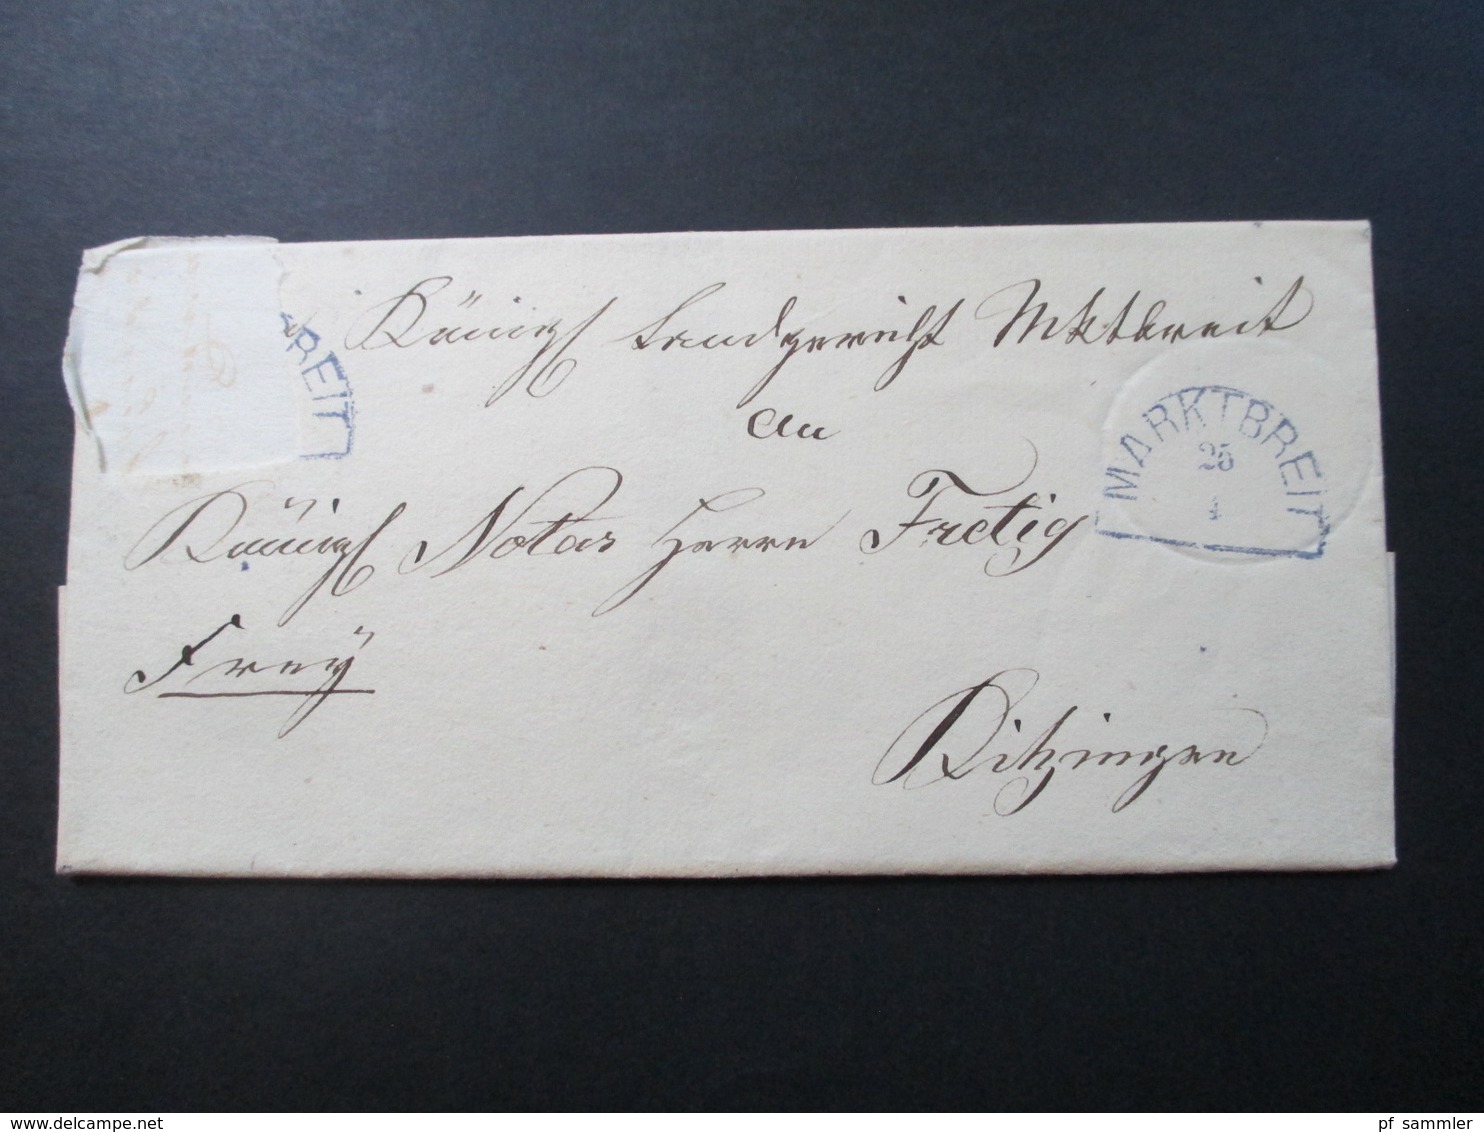 Königl Landgericht Mktbreit
An
Königl Notar Herrn Fretig
Frey
Kitzingen
MARKTBREIT
25
4
REIT
pf sammler